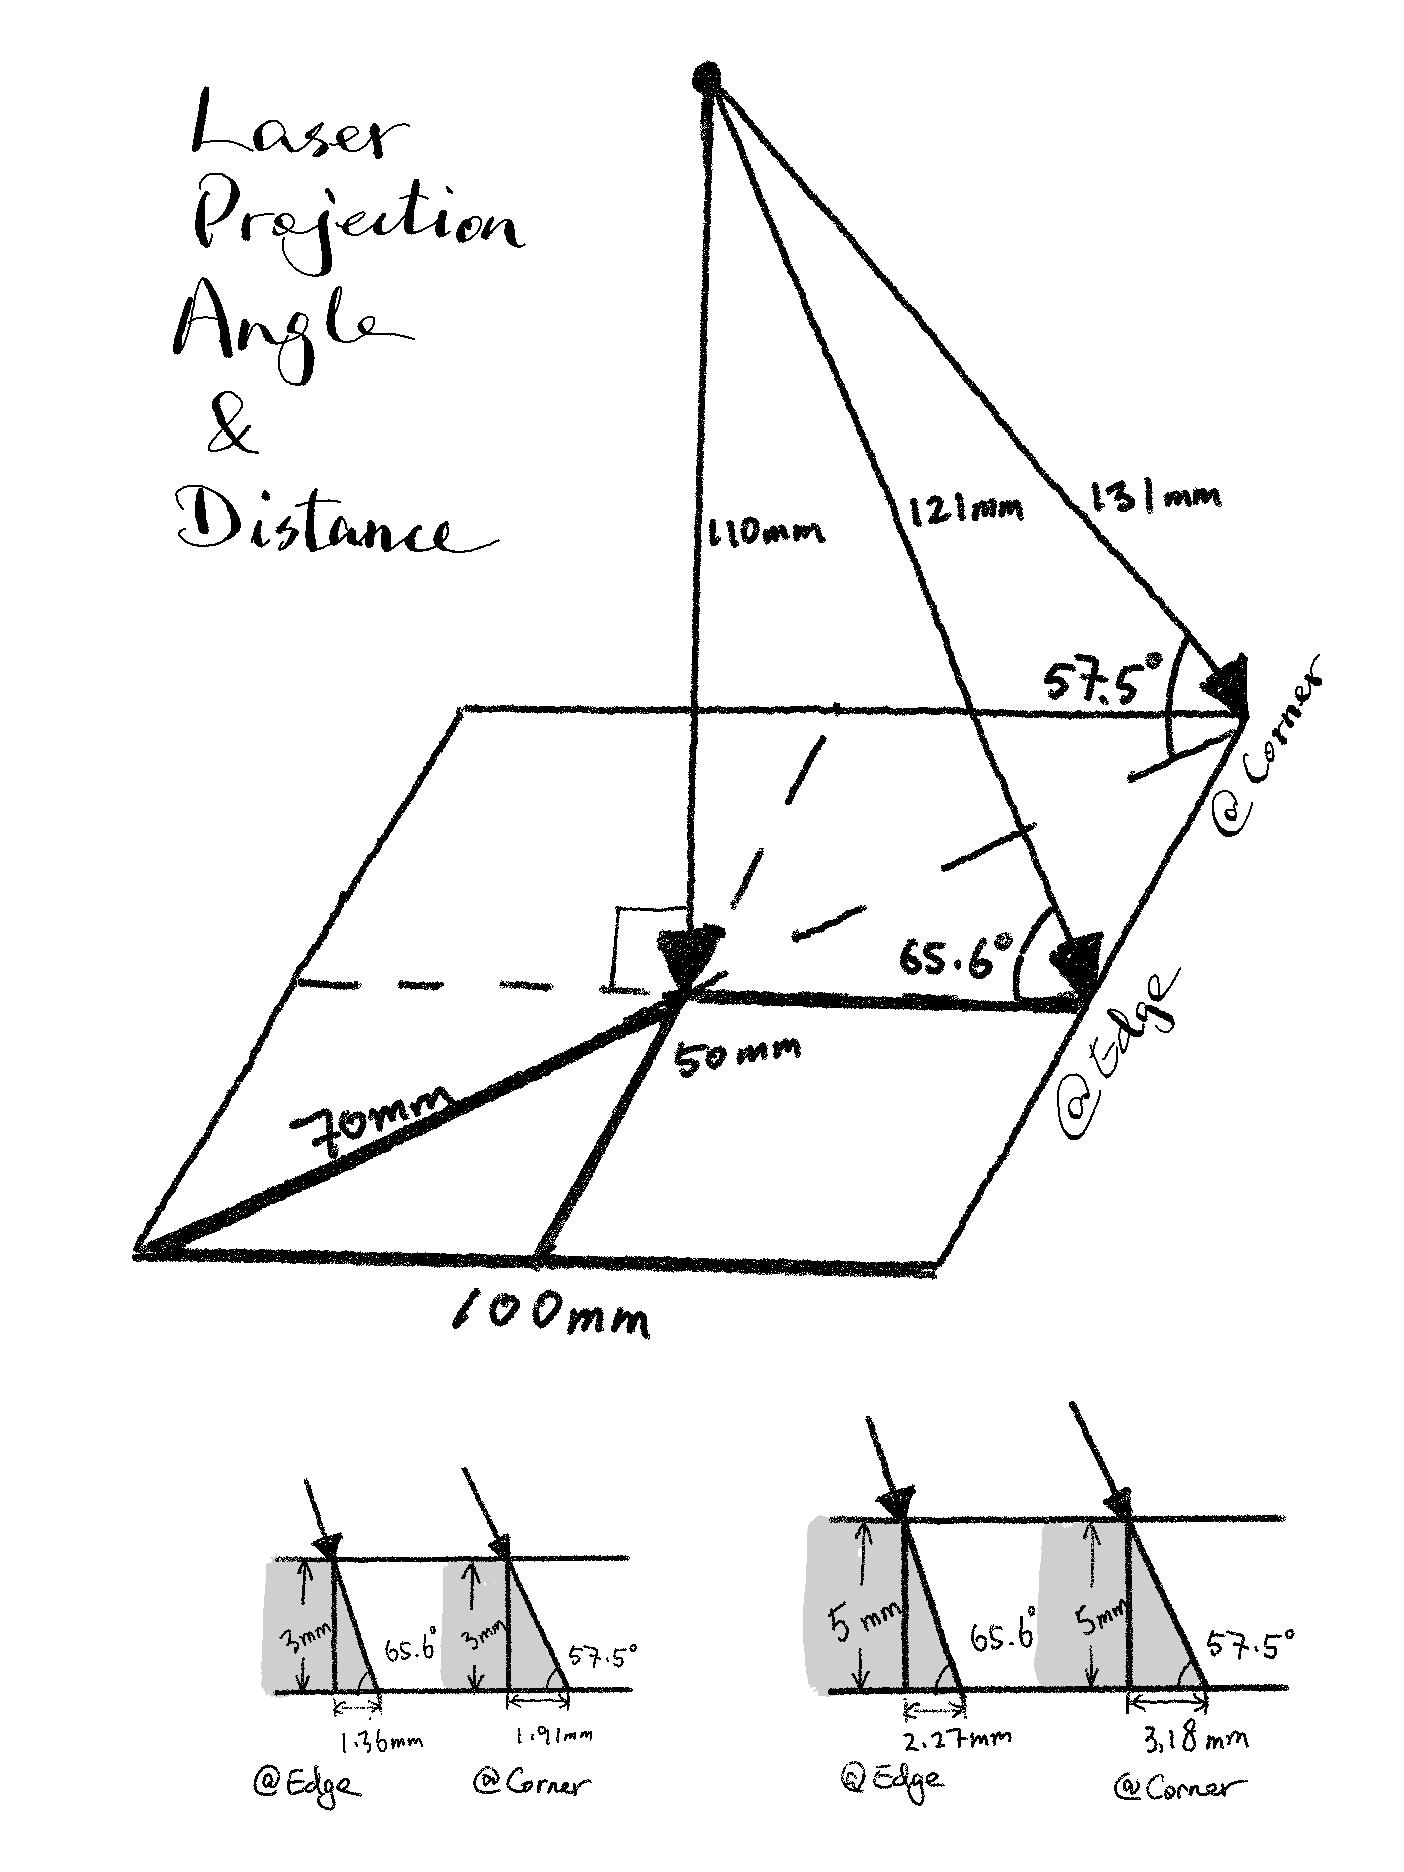 Laser
Projection
Angle
&
Distance
110mm
121mm
131mm
57.5°
@ Corner
65.6°
@ Edge
50mm
70mm
100mm
3mm
65.6°
1.36mm
@Edge
3mm
57.5°
1.91mm
@Corner
5mm
65.6°
2.27mm
@Edge
5mm
57.5°
3,18mm
@Corner